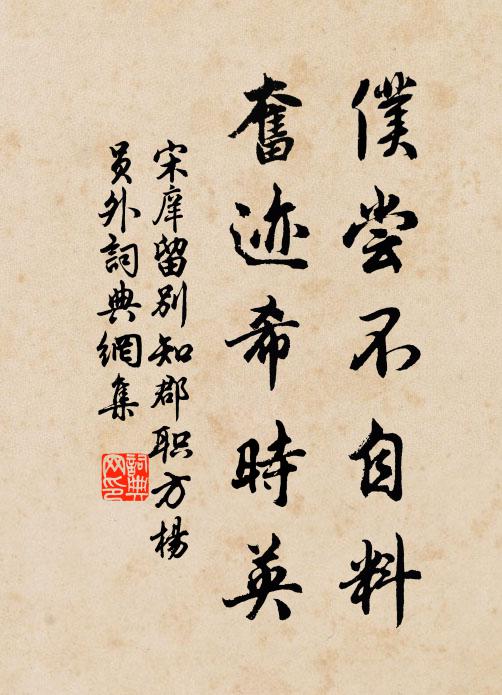 僕尝不自料
奮迹希時英
宋庠留别知郡职方楊
員外詞典網集
詞典
网印